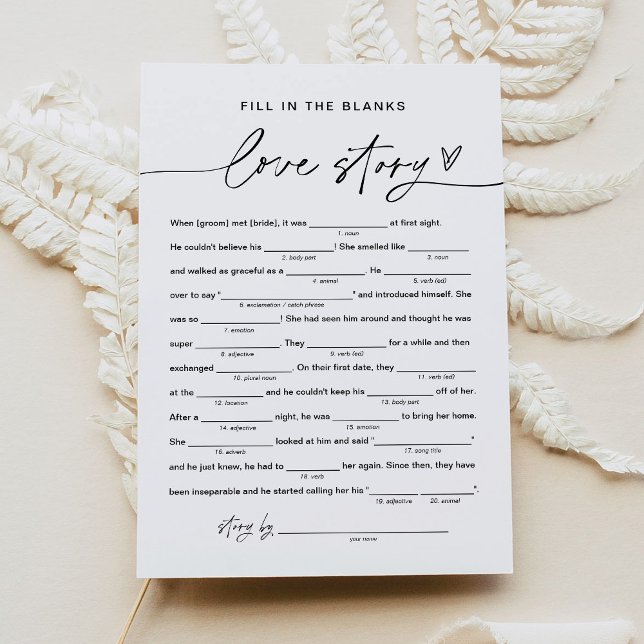 FILL IN THE BLANKS
love story
When [groom] met [bride], it was ______________ at first sight.
1. noun
He couldn't believe his ______________! She smelled like ____________
2. body part 3. noun
and walked as graceful as a ______________. He ________________
4. animal 5. verb (ed)
over to say "________________________" and introduced himself. She
6. exclamation / catch phrase
was so ______________! She had seen him around and thought he was
7. emotion
super ________________. They ______________ for a while and then
8. adjective 9. verb (ed)
exchanged ______________. On their first date, they ______________
10. plural noun 11. verb (ed)
at the ____________ and he couldn't keep his ____________ off of her.
12. location 13. body part
After a ____________ night, he was ____________ to bring her home.
14. adjective 15. emotion
She ________________ looked at him and said "__________________"
16. adverb 17. song title
and he just knew, he had to __________ her again. Since then, they have
18. verb
been inseparable and he started calling her his "_________ __________".
19. adjective 20. animal
story by ______________________________
your name